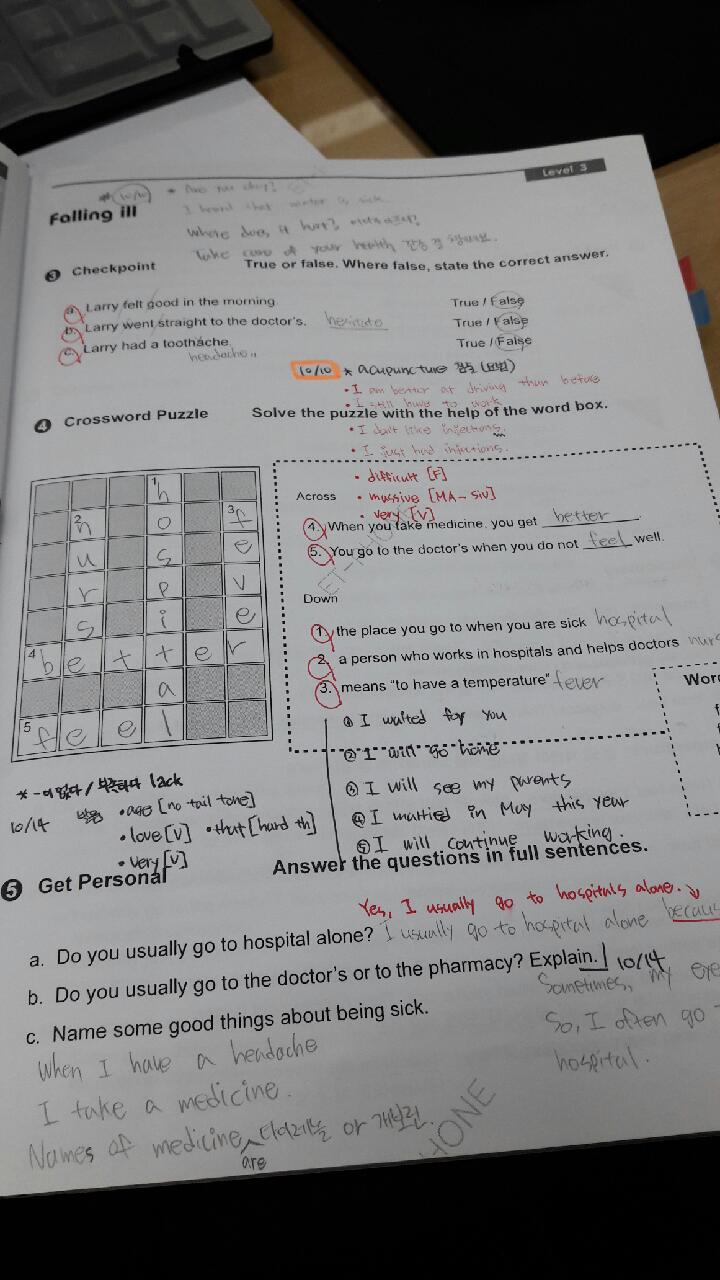 Level 3
* 10/10
Falling ill
I heard that is sick
Where does it hurt?
Take care of your health
3 Checkpoint True or false. Where false, state the correct answer.
a. Larry felt good in the morning. True / False
b. Larry went straight to the doctor's. hesitate True / False
c. Larry had a toothache. True / False
headache
10/10 * acupuncture 침술 (요법)
• I am better at driving than before
• I still have to work
4 Crossword Puzzle Solve the puzzle with the help of the word box.
• I don't like injections.
• I just had injections.
• difficult [F]
Across • massive [MA- Siv]
• very [V]
4. When you take medicine, you get better.
5. You go to the doctor's when you do not feel well.
Down
1. the place you go to when you are sick hospital
2. a person who works in hospitals and helps doctors
3. means "to have a temperature" fever
1 h
2 n o 3 f
u s e
r p v
s i e
4 b e t t e r
a
5 f e e l
① I waited for you
② I will go home
③ I will see my parents
④ I married in May this year
⑤ I will continue working.
* -이 없다 / 부족하다 lack
10/14 발음 • age [no tail tone]
• love [V] • that [hard th]
• very [V]
5 Get Personal Answer the questions in full sentences.
Yes, I usually go to hospitals alone.
a. Do you usually go to hospital alone? I usually go to hospital alone
b. Do you usually go to the doctor's or to the pharmacy? Explain. 10/14
Sometimes, my
c. Name some good things about being sick.
So, I often go
hospital.
When I have a headache
I take a medicine.
Names of medicine are 타이레놀 or 게보린.
HONE